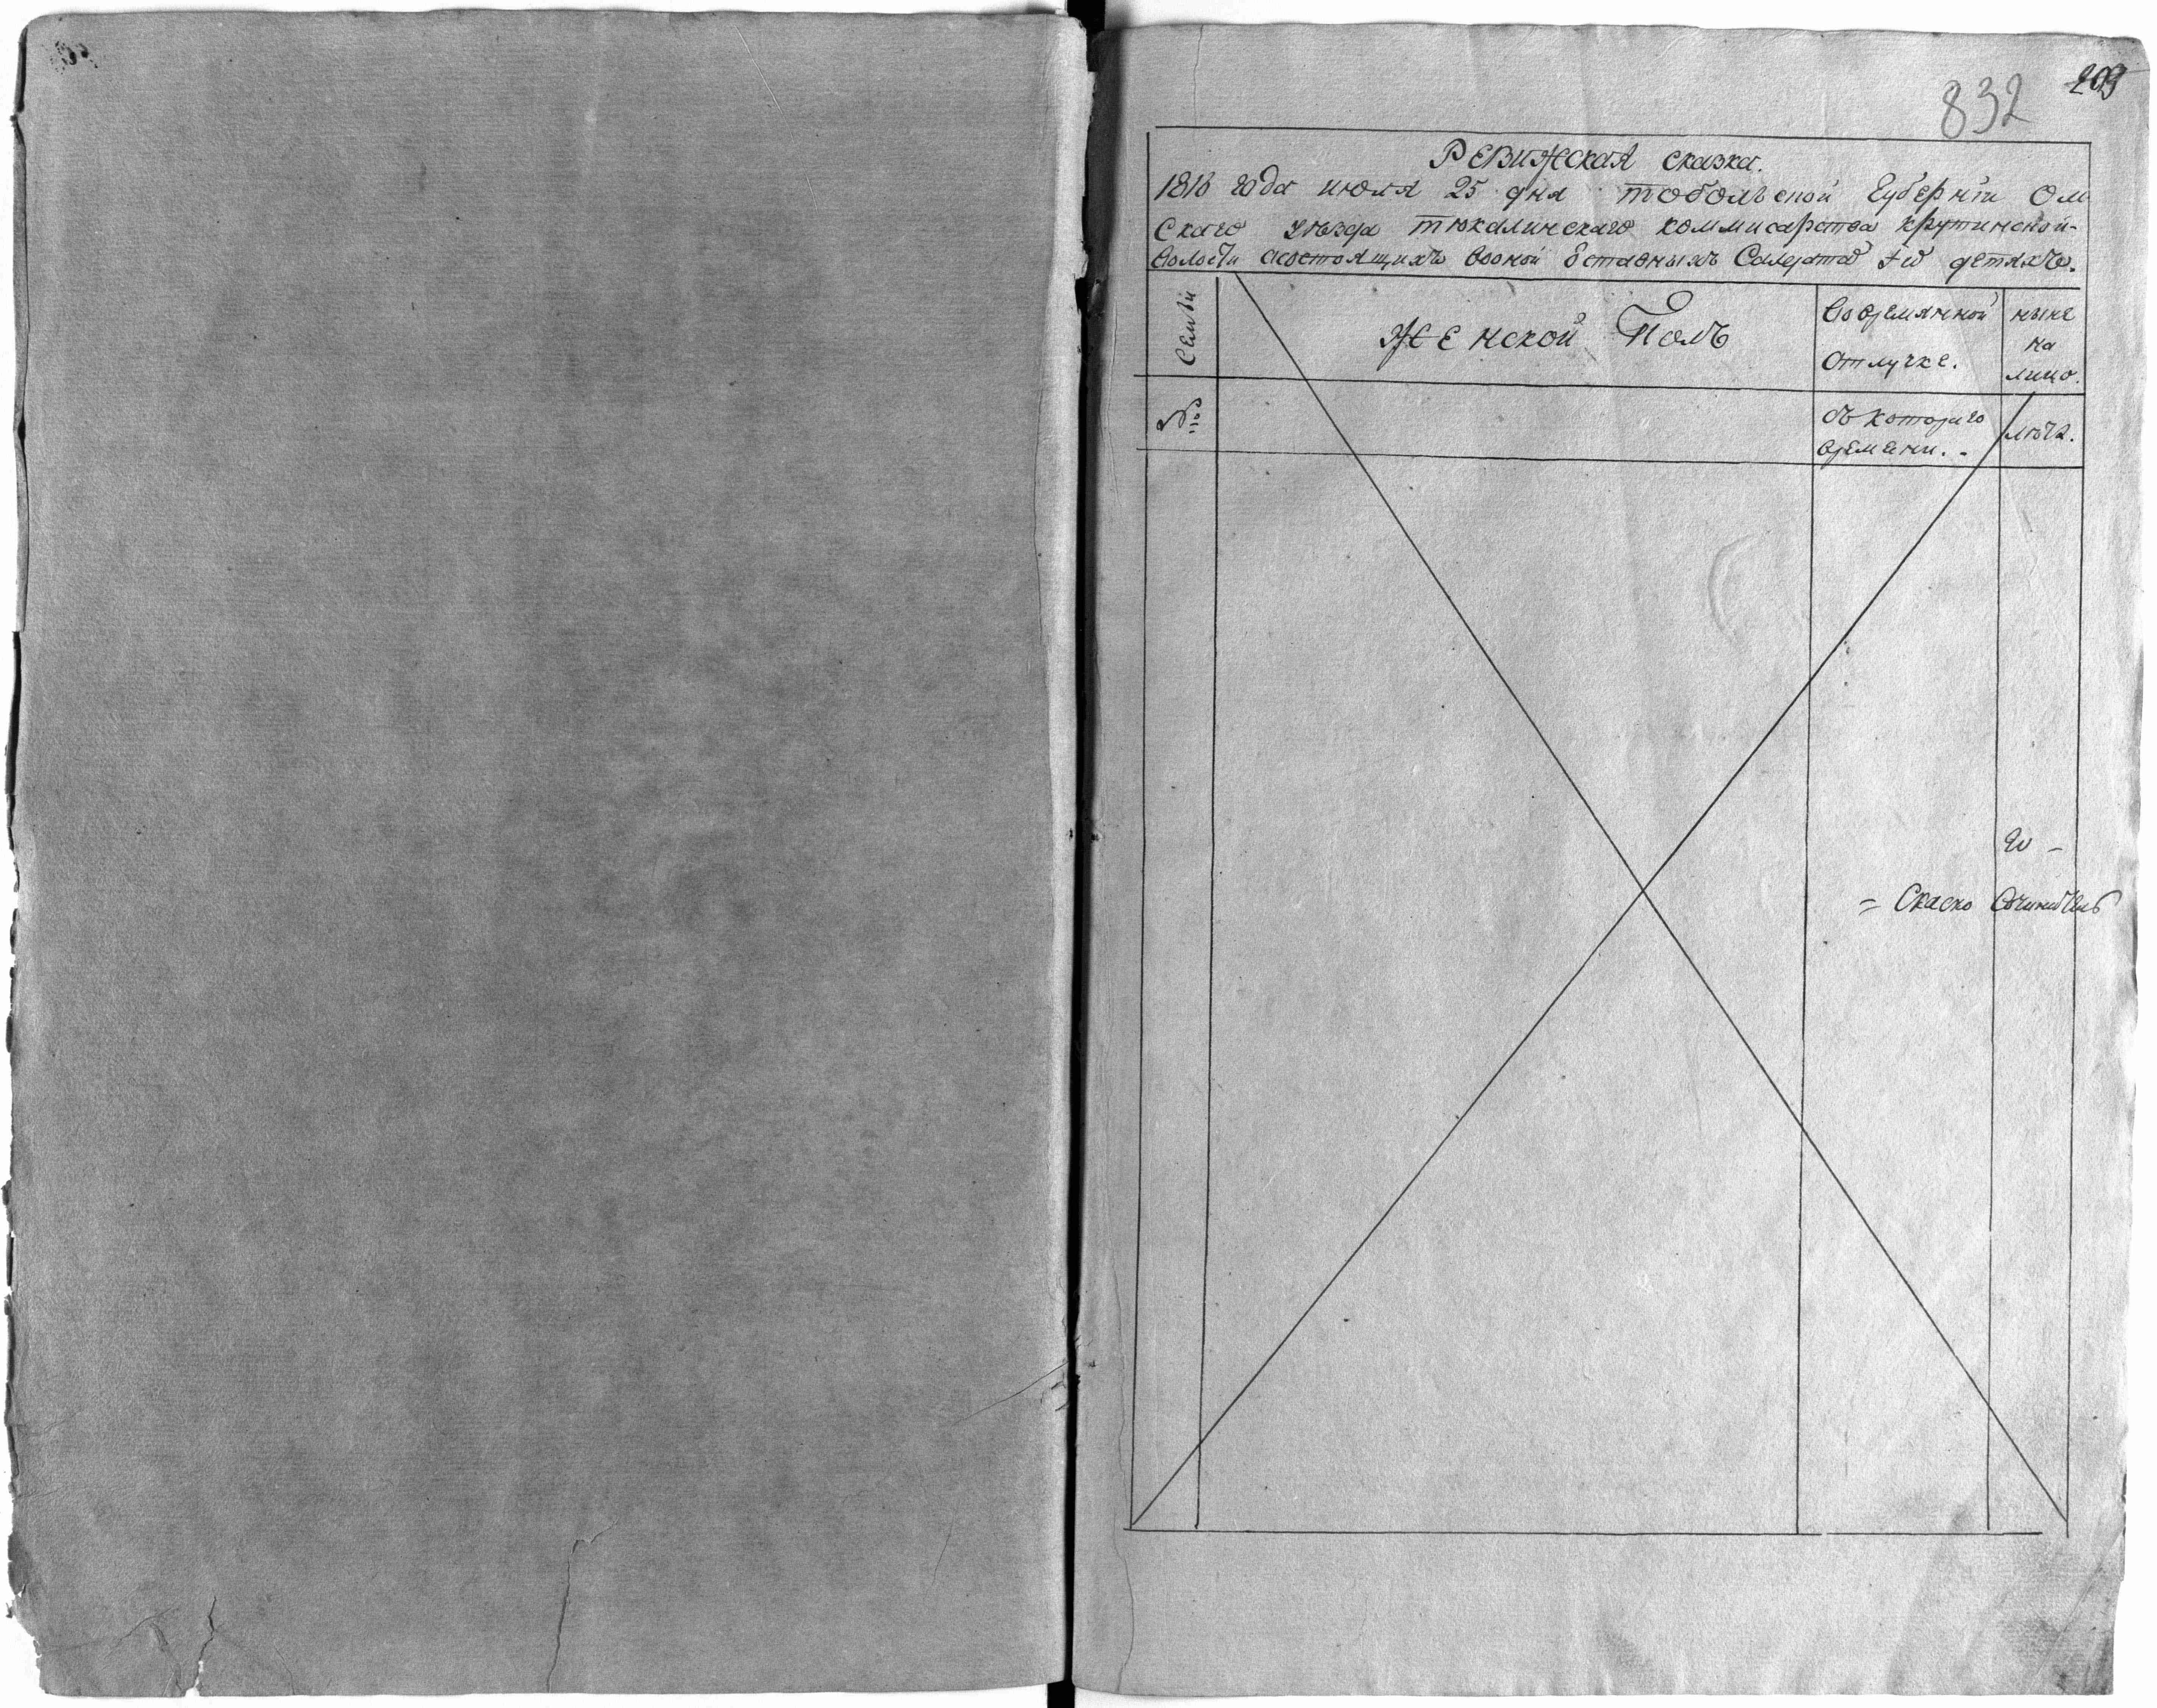 832 203
Ревижская сказка.
1816 года июля 25 дня тобольской Губерніи Ом
скаго уѣзда тюкалинскаго коммисарства крутинской
волости асостоящихъ вооной отставныхъ Салдатъ
детяхъ.
Семьи
Женской Полъ
Во временной
отлучке.
ныне
на
лицо.
№
съ котораго
времени.
лѣта.
= Скаско Сочинитель